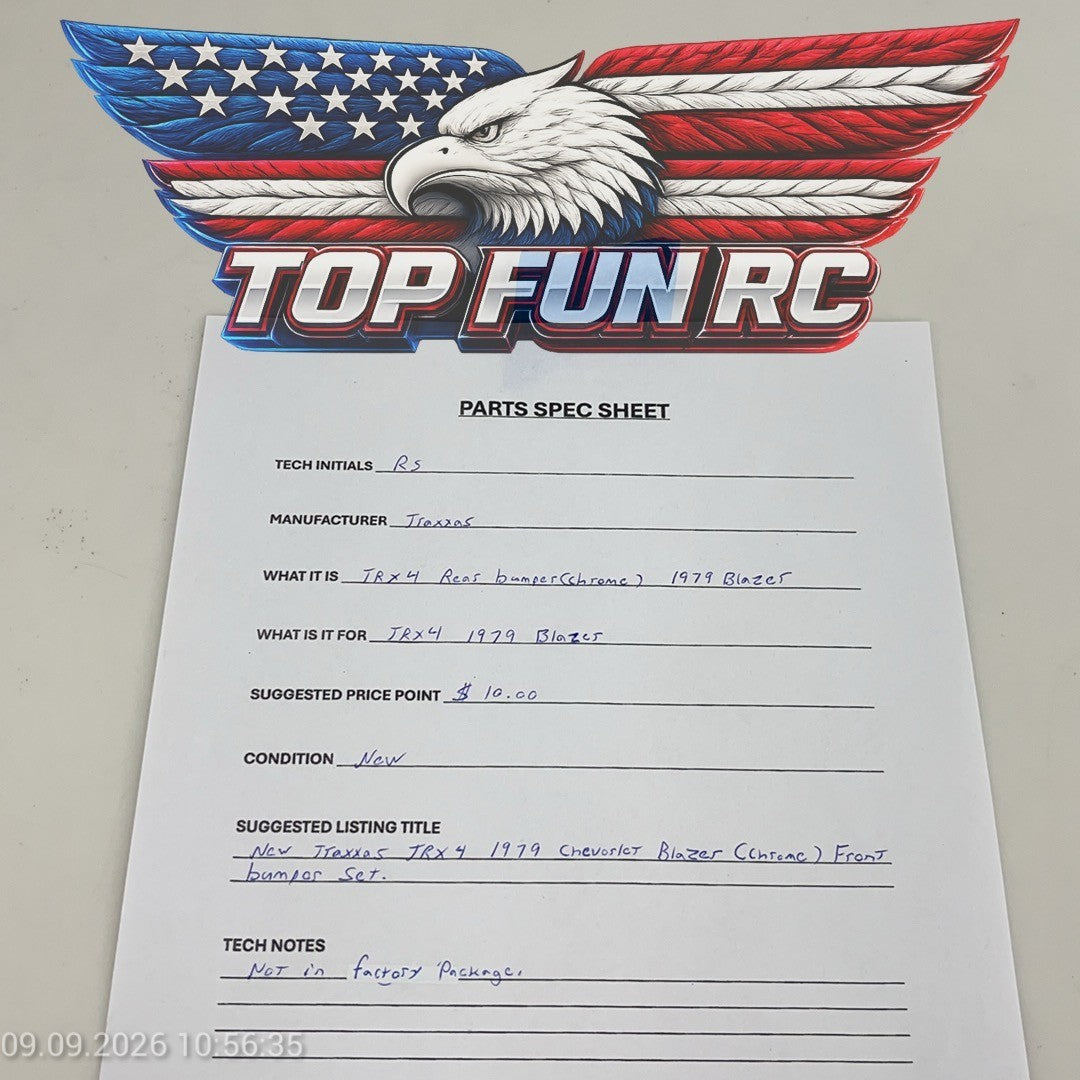 TOP FUN RC
PARTS SPEC SHEET
TECH INITIALS RS
MANUFACTURER Traxxas
WHAT IT IS TRX4 Rear bumper (chrome) 1979 Blazer
WHAT IS IT FOR TRX4 1979 Blazer
SUGGESTED PRICE POINT $ 10.00
CONDITION New
SUGGESTED LISTING TITLE
New Traxxas TRX4 1979 Chevorlet Blazer (Chrome) Front
bumper Set.
TECH NOTES
Not in factory Package.
09.09.2026 10:56:35